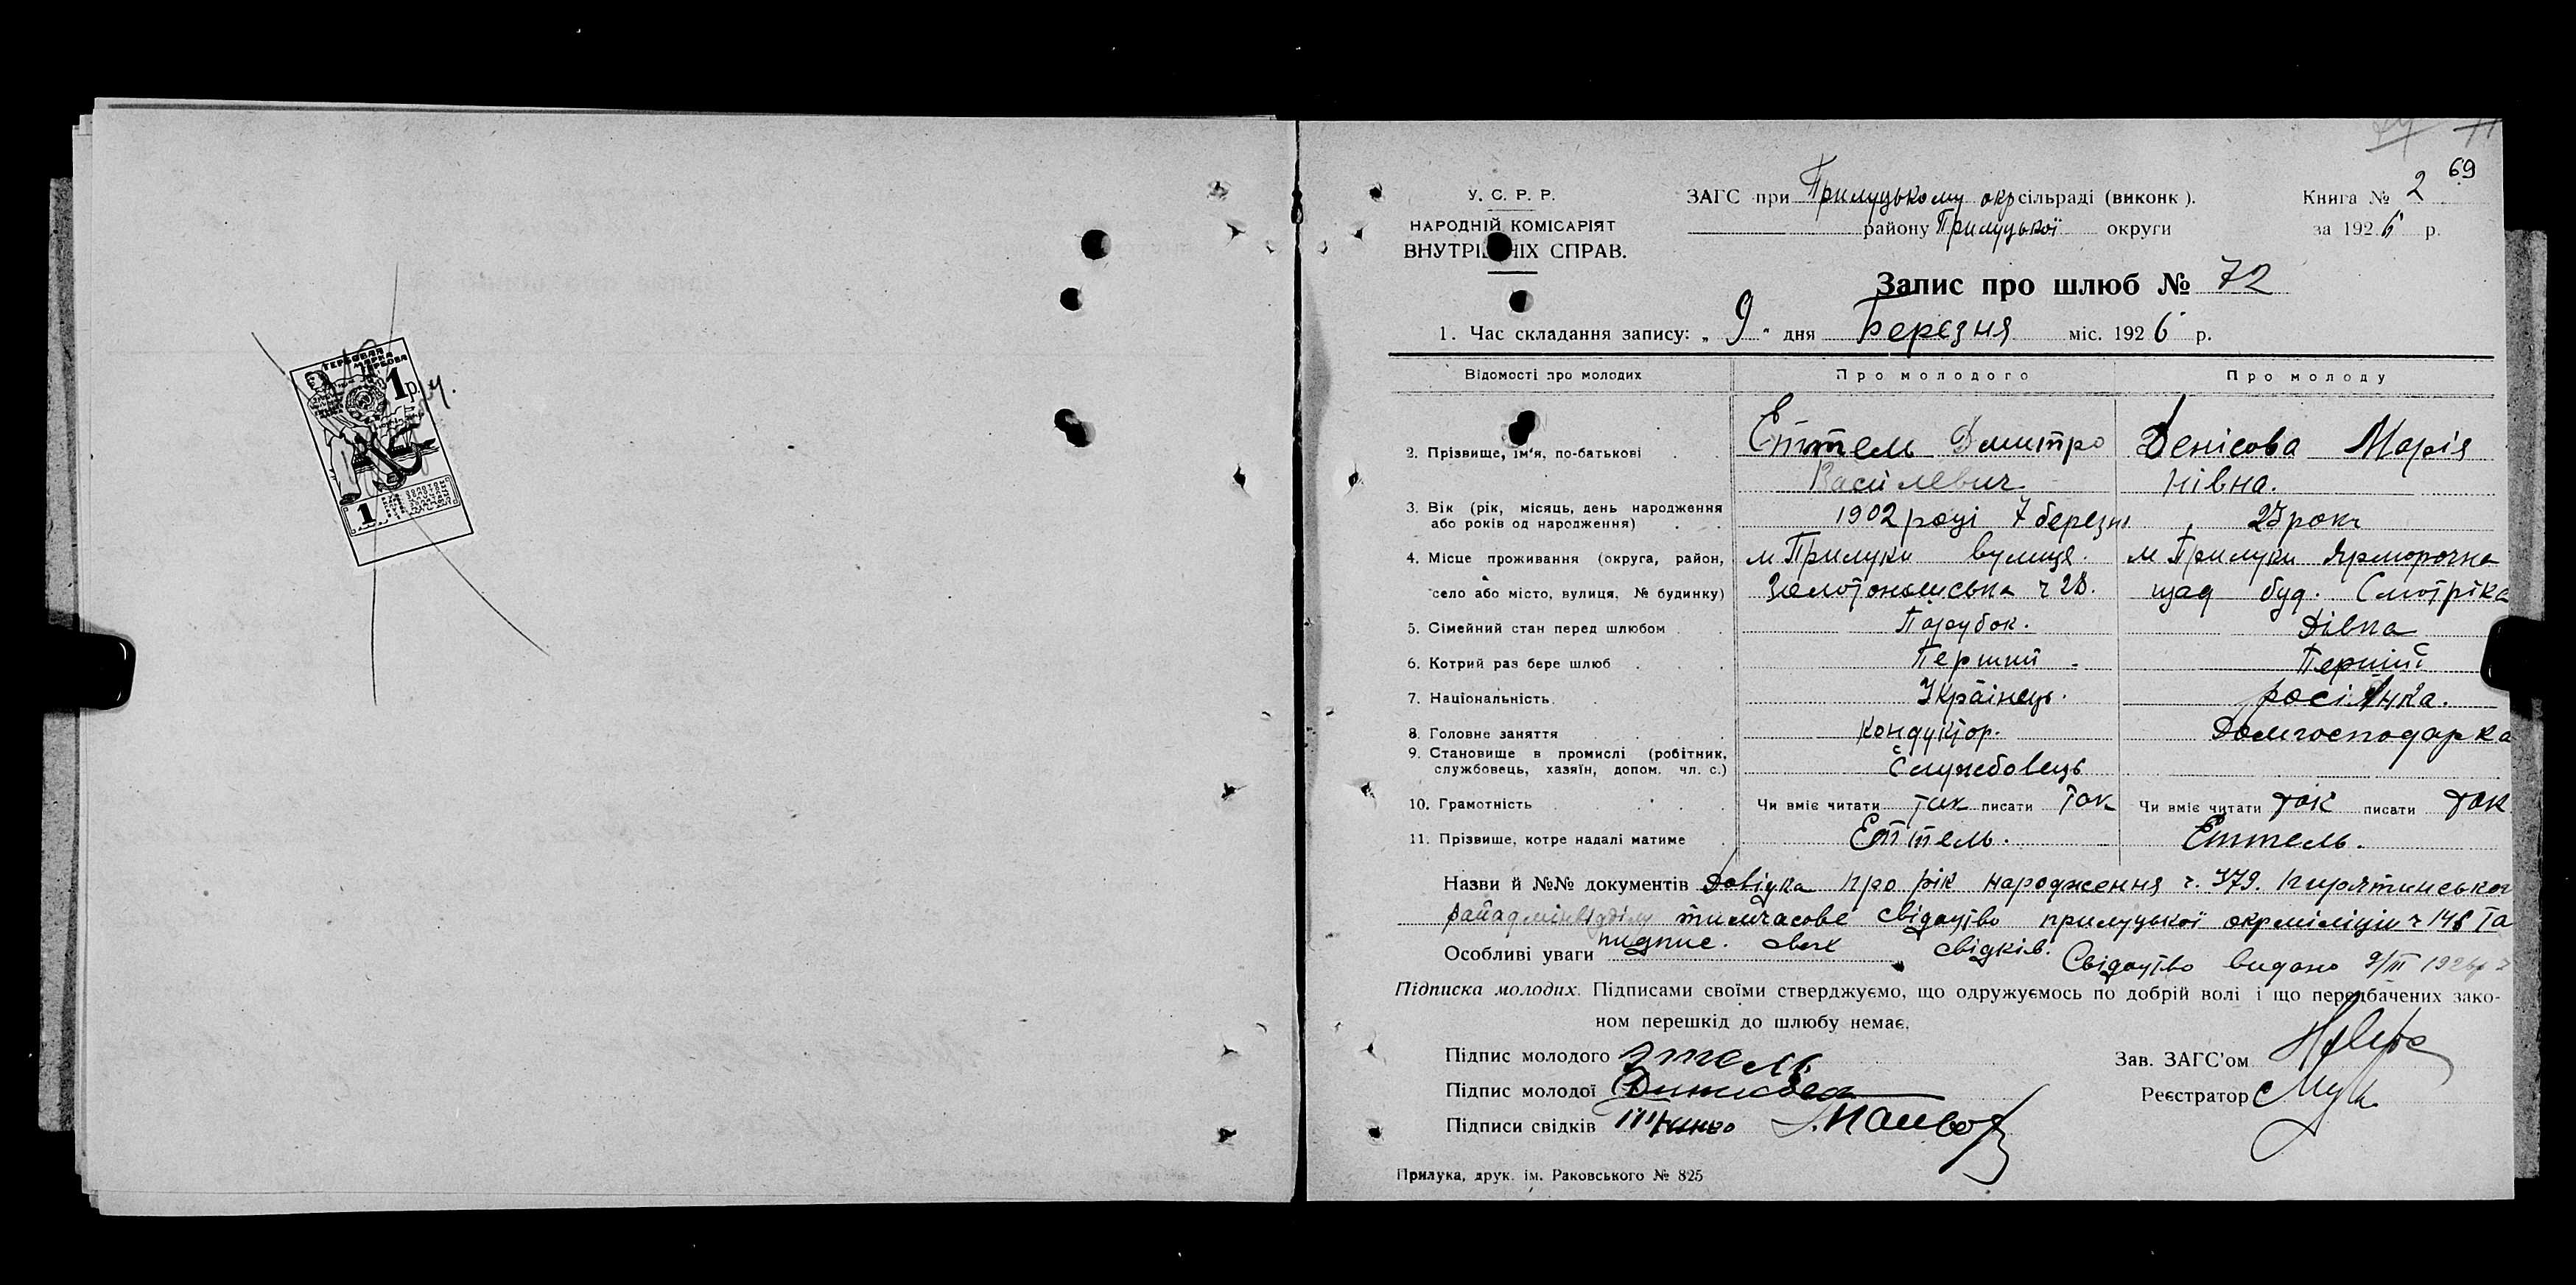 ГЕРБОВАЯ
МАРКА
1 р.
1
69
У. С. Р. Р.
НАРОДНІЙ КОМІСАРІЯТ
ВНУТРІШНІХ СПРАВ.
ЗАГС при Прилуцькому окрсільраді (виконк).
району Прилуцької округи
Книга № 2
за 1926 р.
Запис про шлюб № 72
1. Час складання запису: „ 9 " дня Березня міс. 1926 р.
Відомості про молодих Про молодого Про молоду
2. Прізвище, ім'я, по-батькові Еттель Дмитро Денісова Марія
Васілевич нівна.
3. Вік (рік, місяць, день народження
або років од народження) 1902 році 7 березн 25 рокі
4. Місце проживання (округа, район, м Прилуки вулиця. м Прилуки Ярморочна
село або місто, вулиця, № будинку) ч 28. щад буд. Смотріка
5. Сімейний стан перед шлюбом Парубок. Дівка
6. Котрий раз бере шлюб Перший Перший
7. Національність Українець. росіянка.
8. Головне заняття Кондуктор. Домгосподарка
9. Становище в промислі (робітник,
службовець, хазяїн, допом. чл. с.) Службовець
10. Грамотність Чи вміє читати так писати так Чи вміє читати так писати так
11. Прізвище, котре надалі матиме Еттель. Еттель.
Назви й №№ документів Довідка про рік народження ч. 379. Пирятинськог
райадмінвідділу тимчасове свідоцтво прилуцької окрміліціи ч 148 та
підпис. двох свідків. Свідоцтво видано 9/III 1926р
Особливі уваги
Підписка молодих. Підписами своїми стверджуємо, що одружуємось по добрій волі і що передбачених зако-
ном перешкід до шлюбу немає.
Підпис молодого Этель
Підпис молодої Денисова
Підписи свідків
Зав. ЗАГС'ом
Реєстратор
Прилука, друк. ім. Раковського № 825